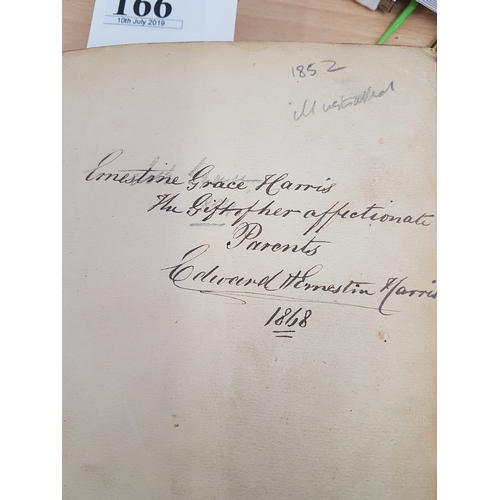 166
10th July 2019
1852
illustrated
Ernestine Grace Harris
The Gift of her affectionate
Parents
Edward & Ernestin Harris
1868